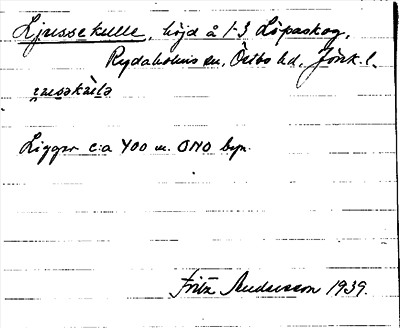 Ljussekulle, höjd å 1-3 Löpaskog,
Rydaholms sn, Östbo hd, Jönk. l.
Ligger c:a 400 m. ONO byn.
Fritz Andersson 1939.